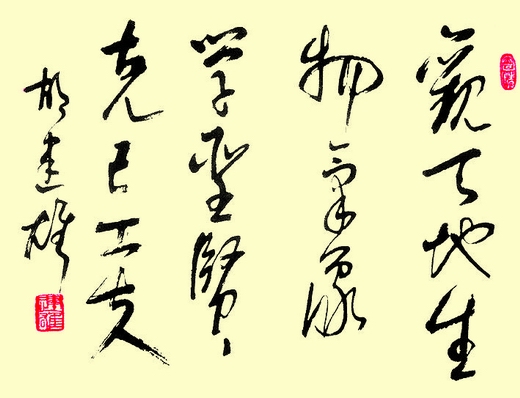 觀天地生
物氣象
学聖賢
克己工夫
胡建雄